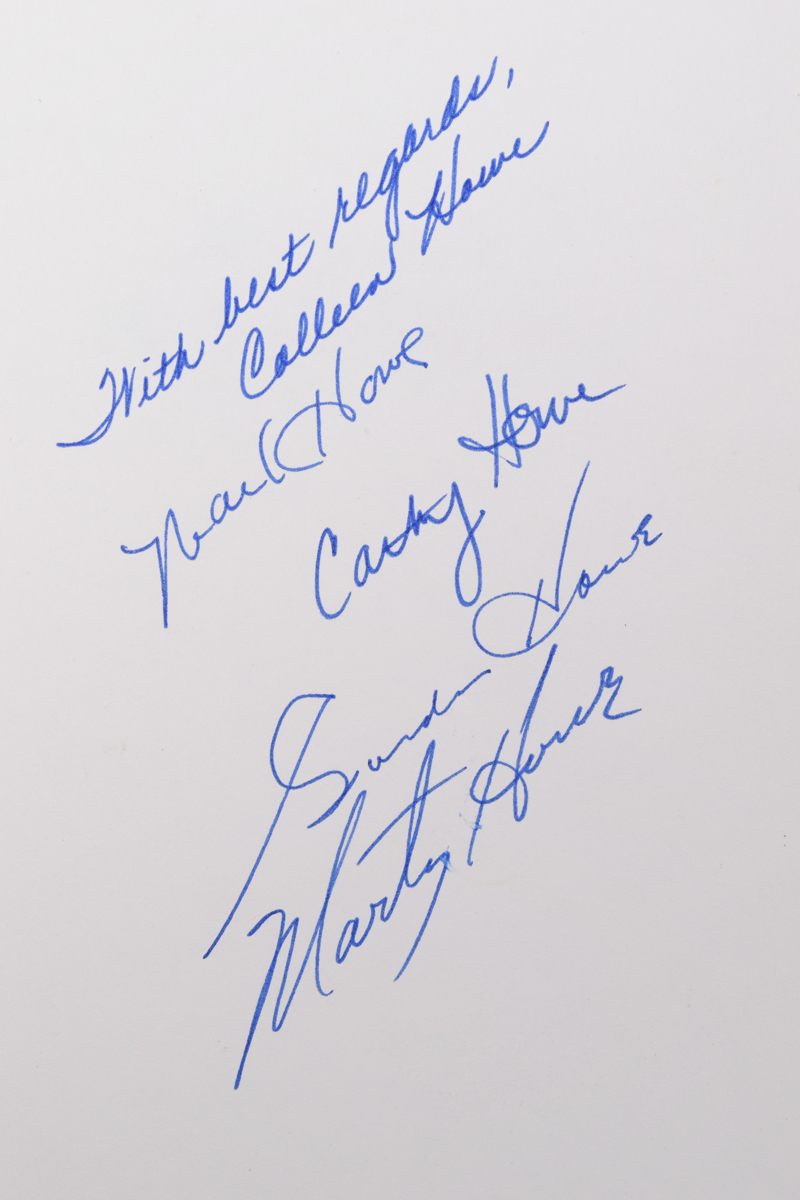 With best regards,
Colleen Howe
Mark Howe
Cathy Howe
Gordie Howe
Marty Howe